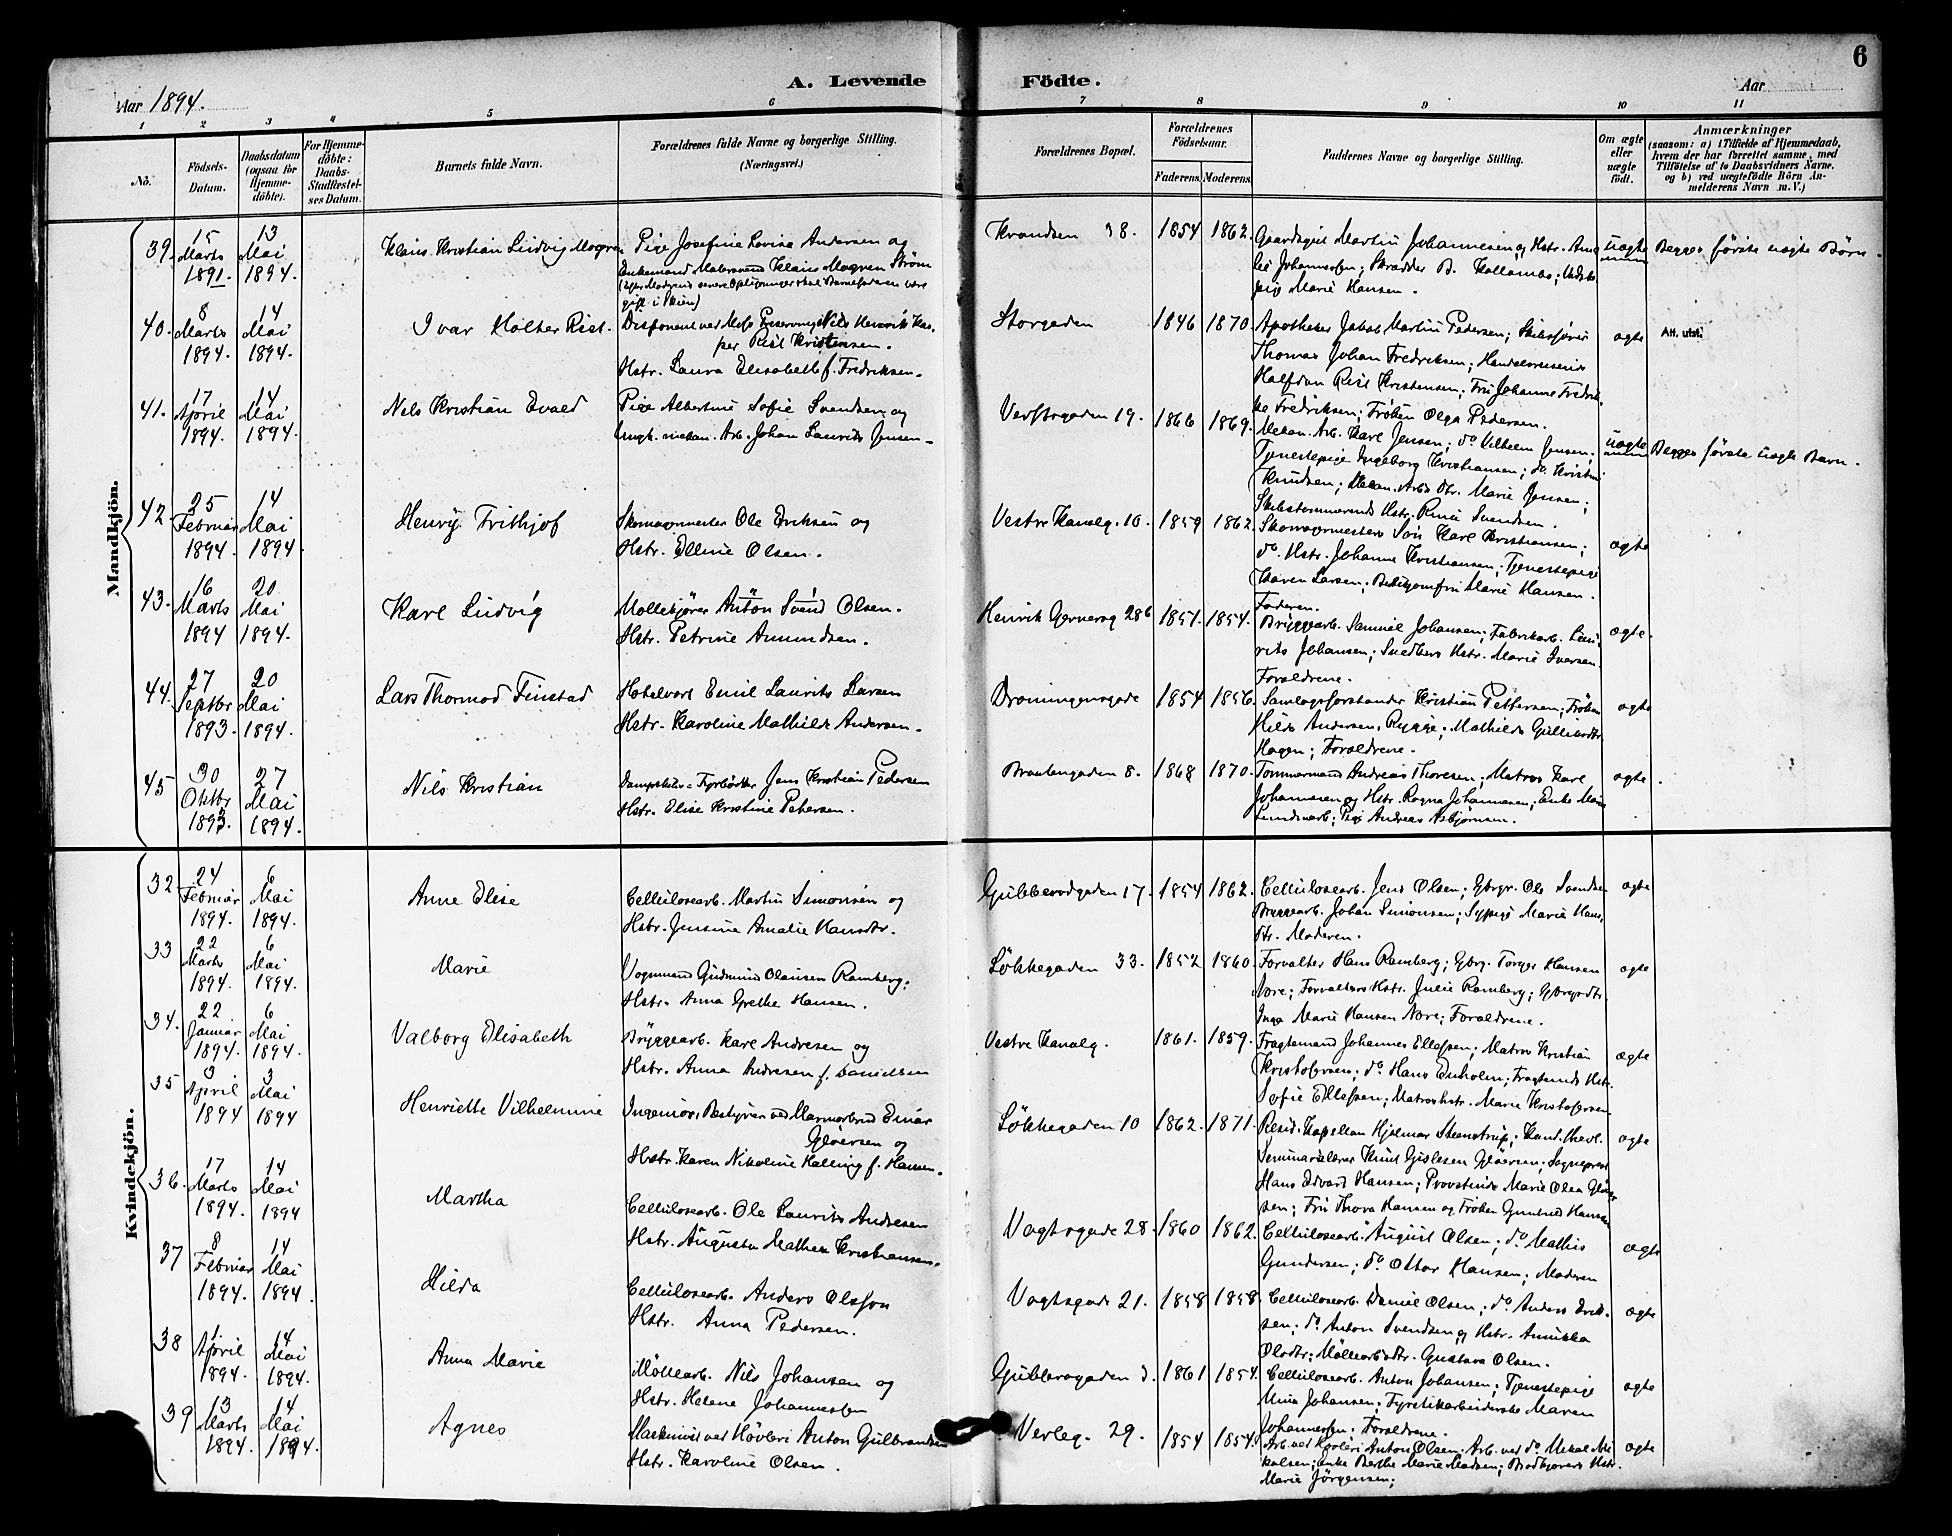 6
A. Levende Födte.
Aar 1894.
Aar
1 2 3 4 5 6 7 8 9 10 11
No.
Födsels-Datum.
Daabsdatum (ogsaa för Hjemme-döbte).
For Hjemme-döbte: Daabs-Stadfæstel-ses Datum.
Barnets fulde Navn.
Forældrenes fulde Navne og borgerlige Stilling. (Næringsvei.)
Forældrenes Bopæl.
Forældrenes Födselsaar.
Faderens Moderens
Faddernes Navne og borgerlige Stilling.
Om ægte eller uægte födt.
Anmærkninger
(saasom: a) i Tilfælde af Hjemmedaab,
hvem der har forrettet samme, med
Tilföielse af to Daabsvidners Navne.
og b) ved uægtefödte Börn An-
melderens Navn m. V.)
Mandkjön.
39. 15 Marts 1891. 13 Mai 1894.
Klaus Kristian Ludvig Mogren
Pige Josefine Lovisa Andersen og
Enkemand Malersvend Klaus Mogren Strøm
gift i Skien)
38. 1854 1862.
Gaardsgut Martin Johannesen og Hstr.
lie Johannesen; Skrædder B.
pige Marie Hansen.
uægte
Begges første uægte Børn.
40. 8 Marts 1894. 14 Mai 1894.
Ivar Holter Rist.
Disponent ved Moss Nils Henrik
per Rist Kristensen.
Hstr. Laura Elisabeth f. Fredriksen.
Storgaden
1846 1870
Apotheker Jakob Martin Pedersen; Skibsfører
Thomas Johan Fredriksen; Handelsreisende
Halfdan Rist Kristensen; Fru Johanne Fredrik-
ke Fredriksen; Frøken Olga Pedersen.
ægte
Att. utst.
41. 17 April 1894. 14 Mai 1894.
Nils Kristian Evald
Pige Albertine Sofie Svendsen og
Ungk. mekan. Arb. Johan Laurits Jensen.
Verftsgaden 19.
1866 1869.
Mekan. Arb. Karl Jensen; do Vilhelm Jensen;
Tjenestepige Ingeborg Kristiansen; do Kristine
Knudsen; Mekan. Arbs Dtr. Marie Jensen;
Skibstømmermds Hstr. Rine Svendsen.
uægte
Begges første uægte Barn.
42. 25 Februar 1894. 14 Mai 1894.
Henry Frithjof
Skomagermester Ole Eriksen og
Hstr. Elline Olsen.
Vestre Kanalg. 10.
1859 1862.
Skomagermesters Søn Karl Kristiansen;
do Hstr. Johanne Kristiansen; Tjenestepige
Karen Larsen; Marie Hansen.
Faderen.
ægte
43. 16 Marts 1894 20 Mai 1894.
Karl Ludvig
Møllekjører Anton Svend Olsen.
Hstr. Petrine Amundsen.
Henrik Gernersg 286
1851. 1854.
Bryggearb. Samuel Johansen; Fabrikarb. Lau-
rits Johansen; Snedkers Hstr. Marie Iversen.
Forældrene.
ægte.
44. 27 Septbr 1893. 20 Mai 1894.
Lars Thormod Finstad
Hotelvært Emil Laurits Larsen
Hstr. Karoline Mathilde Andersen.
Dronningensgade
1854 1856.
Samlagsforstander Kristian Pettersen; Frøken
Hilda Andersen, Rygge; Mathilde Gulliksdtr
Hagen; Forældrene.
ægte
45 30 Oktbr 1893. 27 Mai 1894.
Nils Kristian
Dampskibs-Fyrbøter Jens Kristian Pedersen
Hstr. Elise Kristine Petersen.
Braatengaden 8.
1868 1870.
Tømmermand Andreas Thoresen; Matros Karl
Johannesen og Hstr. Ragna Johannesen; Enke
Pige Andrea Asbjørnsen.
ægte.
Kvindekjön.
32 24 Februar 1894. 6 Mai 1894.
Anne Elise
Cellulosearb. Martin Simonsen og
Hstr. Jensine Amalie Hansdtr.
Gubberodgaden 17.
1854 1862.
Cellulosearb. Jens Olsen; Gbrgr. Ole Svendsen
Bryggearb. Johan Simonsen; Sypige Marie Hans-
dtr. Moderen.
ægte
33 22 Marts 1894. 6 Mai 1894.
Marie
Vognmand Gudmund Olausen Ramberg;
Hstr. Anna Grethe Hansen.
Løkkegaden 33.
1852 1860.
Forvalter Hans Ramberg; Gbrg. Torger Hansen
Nore; Forvalters Hstr. Julie Ramberg; Gbrgsdtr.
Inga Marie Hansen Nore; Forældrene.
ægte
34. 22 Januar 1894. 6 Mai 1894.
Valborg Elisabeth
Bryggearb. Karl Andresen og
Hstr. Anna Andresen f. Danielsen
Vestre Kanalg.
1861. 1859.
Fragtemand Johannes Ellefsen; Matros Kristian
Kristofersen; do Hans Enholm; Fragtemds Hstr.
Sofie Ellefsen; Matroshstr. Marie Kristofersen
ægte
35 3 April 1894 3 Mai 1894
Henriette Vilhelmine
Ingeniør, Bestyrer ved Marmorbrud Einar
Gløersen og
Hstr. Karen Nikoline Kalling f. Hansen.
Løkkegaden 10
1862. 1871.
Resid. Kapellan Hjalmar Steenstrup; Kand. theol.
Seminarielærer Knut Gislesen Gløersen; Sogneprest
Hans Edvard Hansen; Provstinde Marie Olea Gløer-
sen; Fru Thora Hansen og Frøken Gunhild Hansen
ægte
36. 17 Marts 1894. 14 Mai 1894
Martha
Cellulosearb. Ole Laurits Andresen
Hstr. Augusta Mathea Kristiansen.
Vogtsgade 28.
1860 1862.
Cellulosearb. August Olsen; do Mathis
Gundersen; do Ottar Hansen; Moderen
ægte
37 8 Februar 1894. 14 Mai 1894.
Hilda
Cellulosearb. Anders Olsson
Hstr. Anna Pedersen.
Vogtsgade 21.
1858 1858.
Cellulosearb. Daniel Olsen; do Anders Erik-
sen; do Anton Svendsen og Hstr. Annikka
Olsdtr; Møllearbsdtr. Gustava Olsen.
ægte
38 1 April 1894. 14 Mai 1894.
Anna Marie
Møllearb. Nils Johansen og
Hstr. Helene Johannesen
Gubberogaden 3.
1861 1854.
Cellulosearb. Anton Johansen; Tjenestepige
Mina Johansen; Fyrstikarbeiderske Maren
Johannesen; Forældrene.
ægte
39 13 Marts 1894. 14 Mai 1894.
Agnes
Maskinist ved Høvleri Anton Gulbrandsen
Hstr. Karoline Olsen.
Verleg. 29.
1854 1854.
Arb. ved Høvleri Anton Olsen, Arb. ved do Mikal Mi-
kalsen; Enke Berthe Marie Madsen; Brødkjørers Hstr.
Marie Jørgensen;
ægte